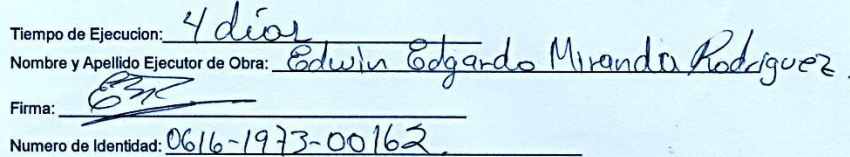 Tiempo de Ejecucion: 4 días
Nombre y Apellido Ejecutor de Obra: Edwin Edgardo Miranda Rodriguez.
Firma:
Numero de Identidad: 0616-1973-00162